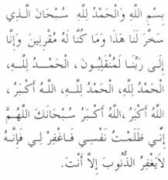 بِسْمِ اللَّهِ وَالْحَمْدُ لِلَّهِ سُبْحَانَ الَّذِي
سَخَّرَ لَنَا هَذَا وَمَا كُنَّا لَهُ مُقْرِنِينَ وَإِنَّا
إِلَى رَبِّنَا لَمُنْقَلِبُونَ ، الْحَمْدُ لِلَّهِ،
الْحَمْدُ لِلَّهِ، الْحَمْدُ لِلَّهِ، اللَّهُ أَكْبَرُ ،
اللَّهُ أَكْبَرُ ،اللَّهُ أَكْبَرُ سُبْحَانَكَ اللَّهُمَّ
إِنِّي ظَلَمْتُ نَفْسِي فَاغْفِرْ لِي فَإِنَّهُ
لَايَغْفِرُ الذُّنُوبَ إِلَّا أَنْتَ.